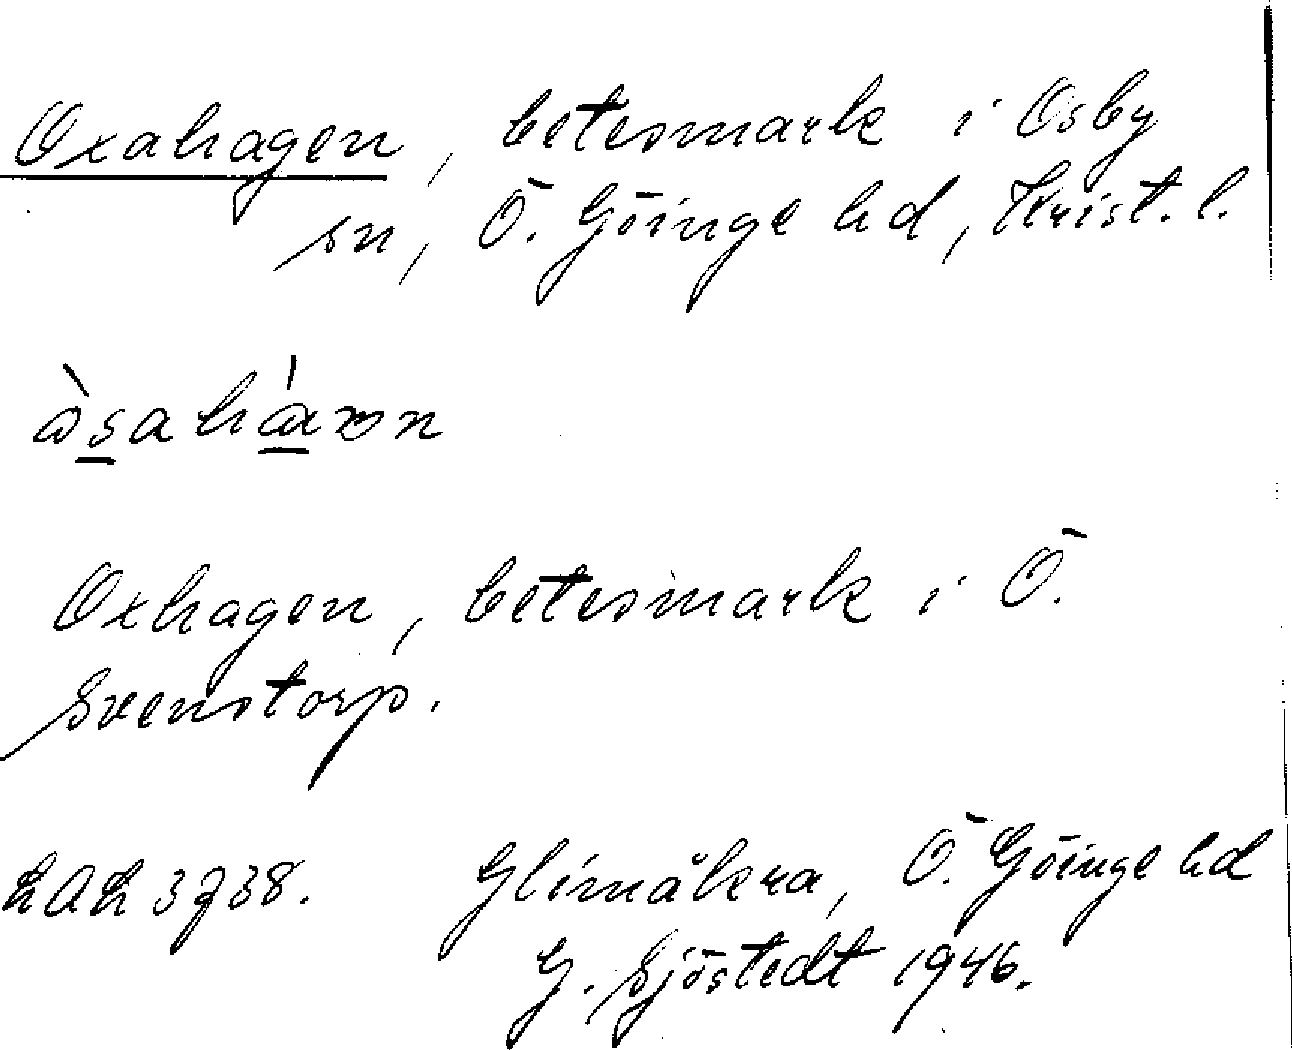 Oxahagen, betesmark i Osby
sn, Ö. Göinge hd, Krist. l.
Oxhagen, betesmark i Ö.
Svenstorp.
LAL 3738. Glimåkra, Ö. Göinge hd
G. Sjöstedt 1946.